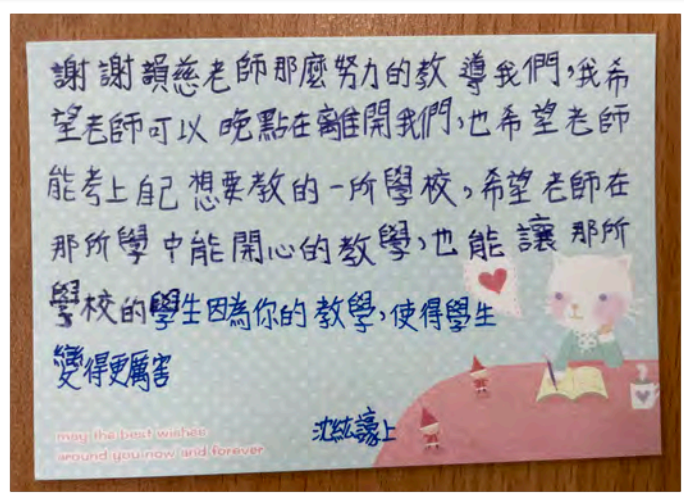 謝謝韻慈老師那麼努力的教導我們，我希
望老師可以晚點在離開我們，也希望老師
能考上自己想要教的一所學校，希望老師在
那所學中能開心的教學，也能讓那所
學校的學生因為你的教學，使得學生
變得更厲害
沈紘讓上
may the best wishes
around you now and forever